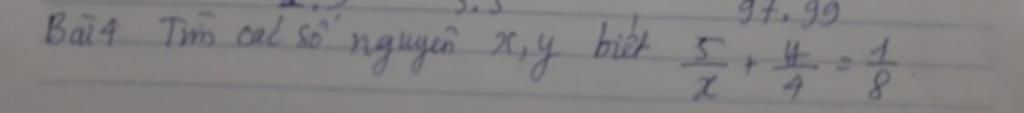 97.99
Bài 4 Tìm các số nguyên x, y biết 5/x + y/4 = 1/8